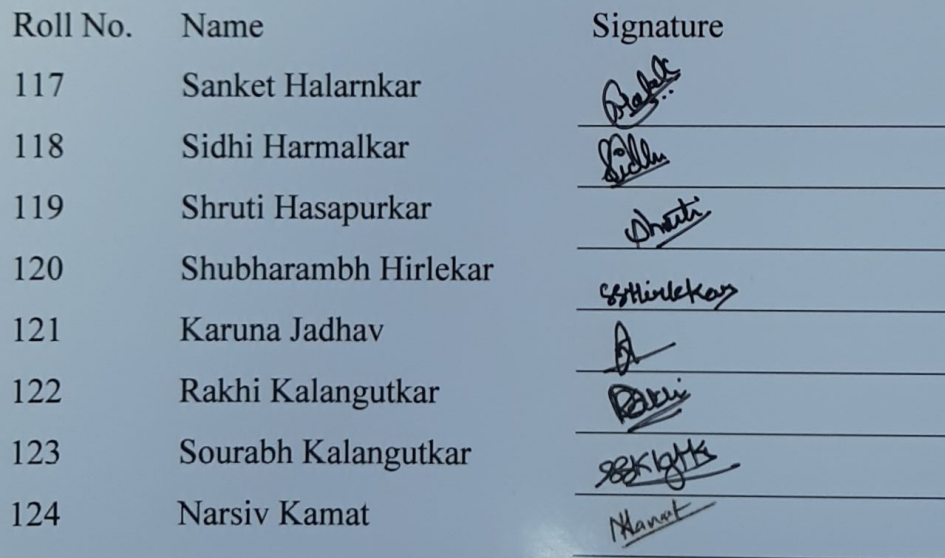 Roll No. Name Signature
117 Sanket Halarnkar
118 Sidhi Harmalkar Sidhi
119 Shruti Hasapurkar Shruti
120 Shubharambh Hirlekar SSHirlekar
121 Karuna Jadhav
122 Rakhi Kalangutkar Rakhi
123 Sourabh Kalangutkar
124 Narsiv Kamat NKamat